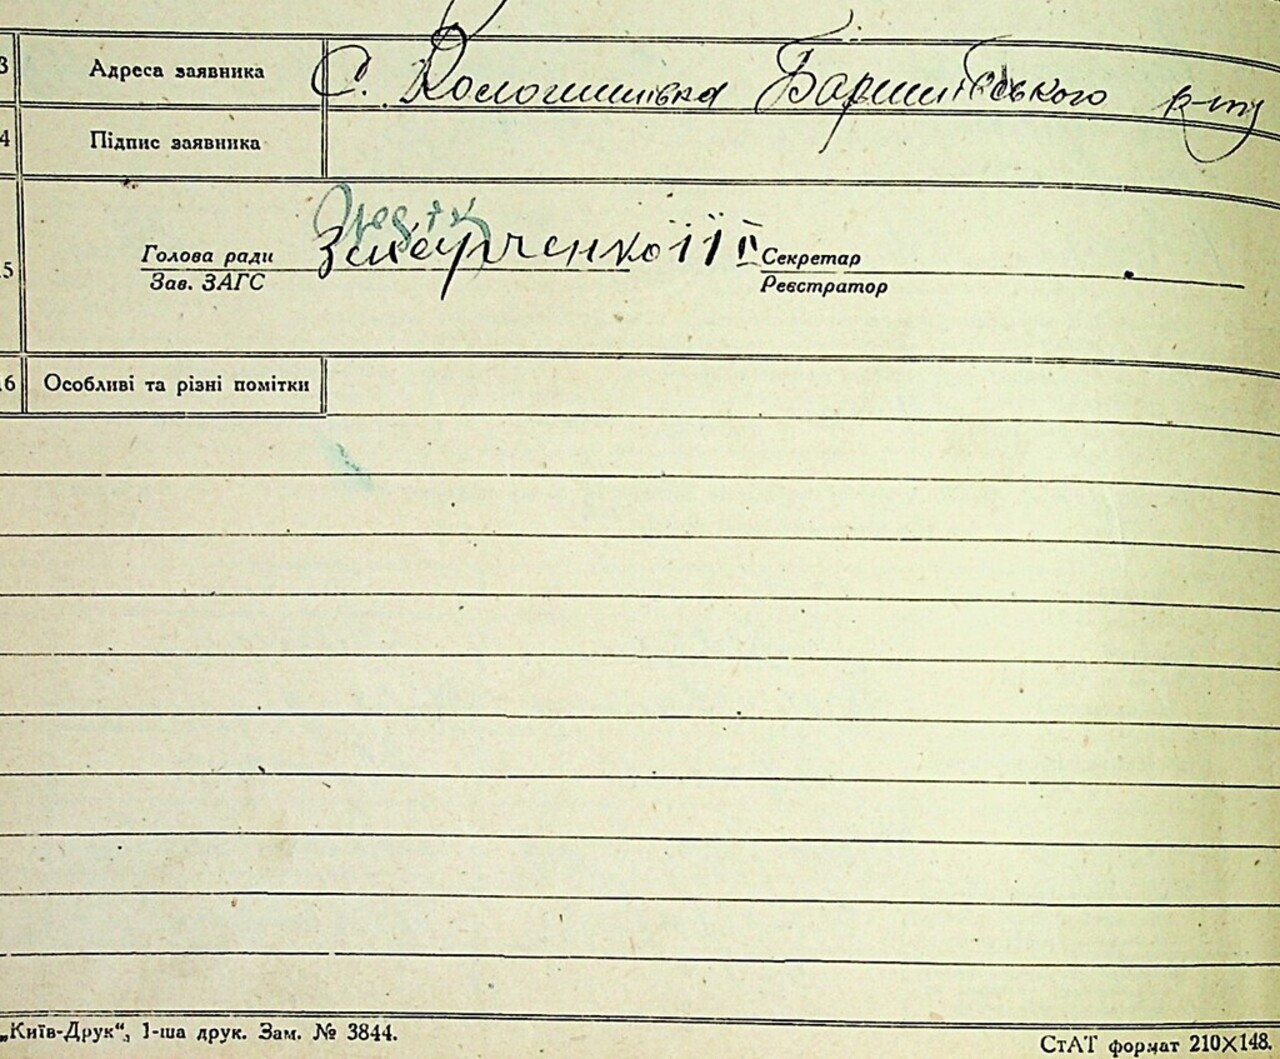 3 Адреса заявника С. Кологишівка Баришівського р-ну
4 Підпис заявника
5 Голова ради Секретар
Зав. ЗАГС Реєстратор
6 Особливі та різні помітки
„Київ-Друк“, 1-ша друк. Зам. № 3844. СтАТ формат 210×148.